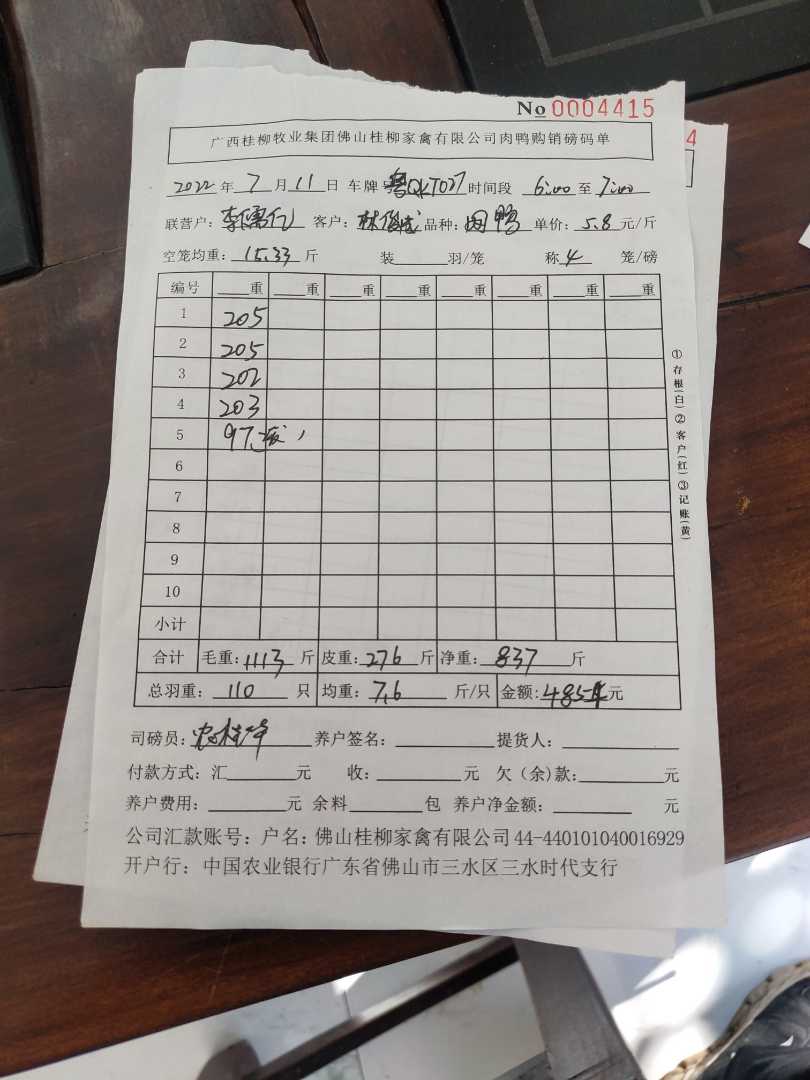 No 0004415
4
广西桂柳牧业集团佛山桂柳家禽有限公司肉鸭购销磅码单
2022年 7月11日 车牌号粤QKT027时间段 6:00至7:00
联营户: 李 客户: 林俊 品种: 肉鸭 单价: 5.8元/斤
空笼均重: 15.33斤 装 羽/笼 称4 笼/磅
编号 重 重 重 重 重 重 重 重
1 205
2 205
3 202
4 203
5 97
6
7
8
9
10
小计
合计 毛重: 1113斤 皮重: 276斤 净重: 837斤
总羽重: 110只 均重: 7.6斤/只 金额: 4854元
司磅员: 养户签名: 提货人:
付款方式: 汇 元 收: 元 欠(余)款: 元
养户费用: 元 余料 包 养户净金额: 元
公司汇款账号: 户名: 佛山桂柳家禽有限公司 44-440101040016929
开户行: 中国农业银行广东省佛山市三水区三水时代支行
①存根(白)②客户(红)③记账(黄)